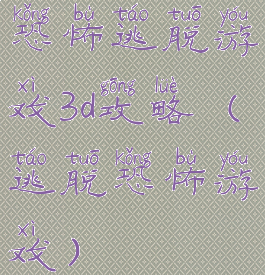 kǒng bù táo tuō yóu
恐怖逃脱游
xì gōng lüè
戏3d攻略（
táo tuō kǒng bù yóu
逃脱恐怖游
xì
戏）